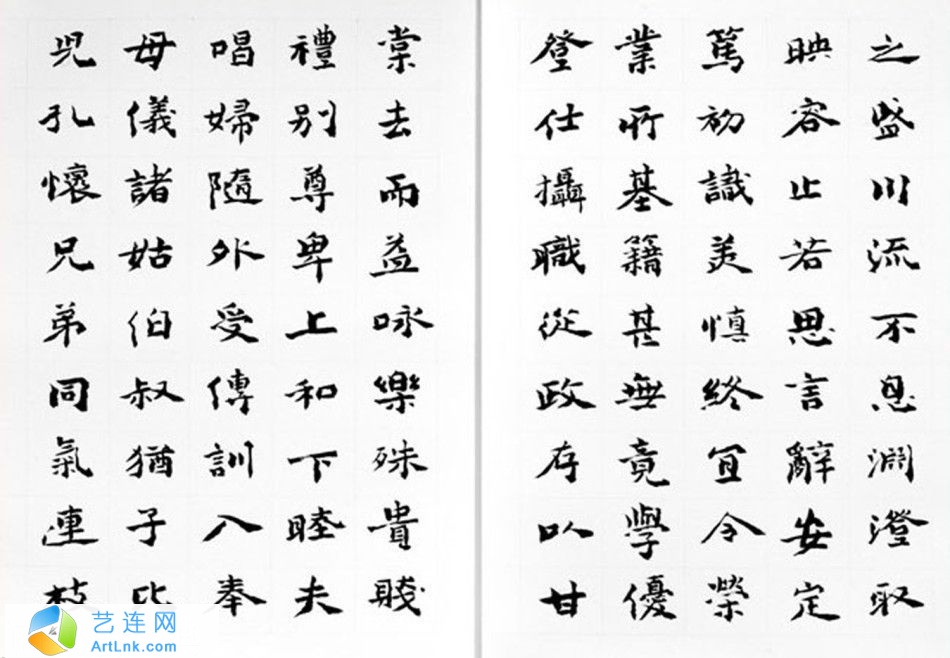 之盛川流不息淵澄取
映容止若思言辭安定
篤初識美慎終宜令榮
業所基籍甚無竟學優
登仕攝職從政存以甘
棠去而益咏樂殊貴賤
禮別尊卑上和下睦夫
唱婦隨外受傅訓入奉
母儀諸姑伯叔猶子比
兒孔懷兄弟同氣連枝
艺连网
ArtLnk.com